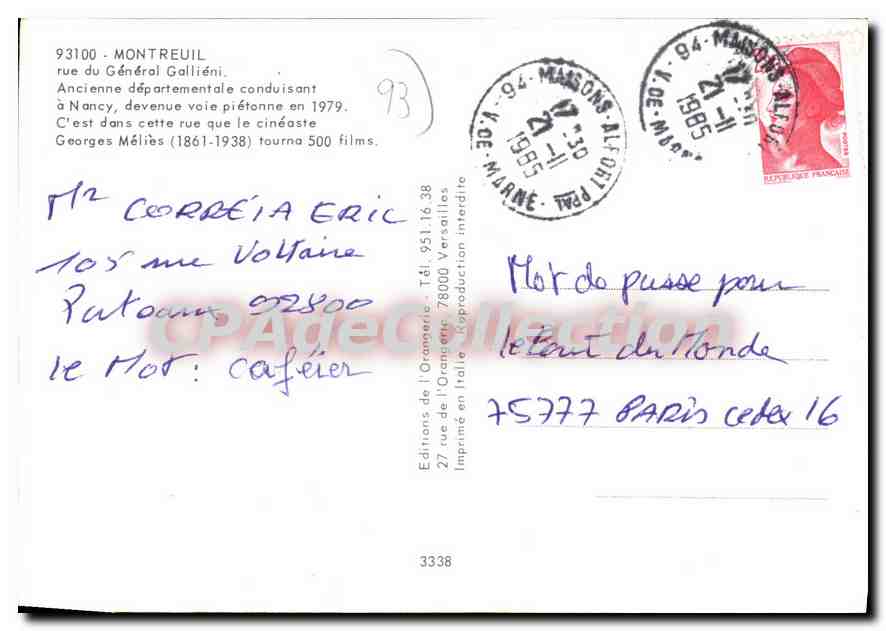 93100 - MONTREUIL
rue du Général Galliéni.
Ancienne départementale conduisant
à Nancy, devenue voie piétonne en 1979.
C'est dans cette rue que le cinéaste
Georges Méliès (1861-1938) tourna 500 films.
93
Mr CORREIA ERIC
105 rue Voltaire
Puteaux 92800
le Mot : caféier
Editions de l'Orangerie - Tél. 951.16.38
27 rue de l'Orangerie 78000 Versailles
Imprimé en Italie - Reproduction interdite
3338
94 - MAISONS-ALFORT PPAL
17 H 30
21-11
1985
V. DE - MARNE
94 - MAISONS-ALFORT
21-11
1985
V. DE - MARNE
POSTES
REPUBLIQUE FRANÇAISE
Mot de passe pour
le tout du Monde
75777 PARIS cedex 16
CPAgeCollection